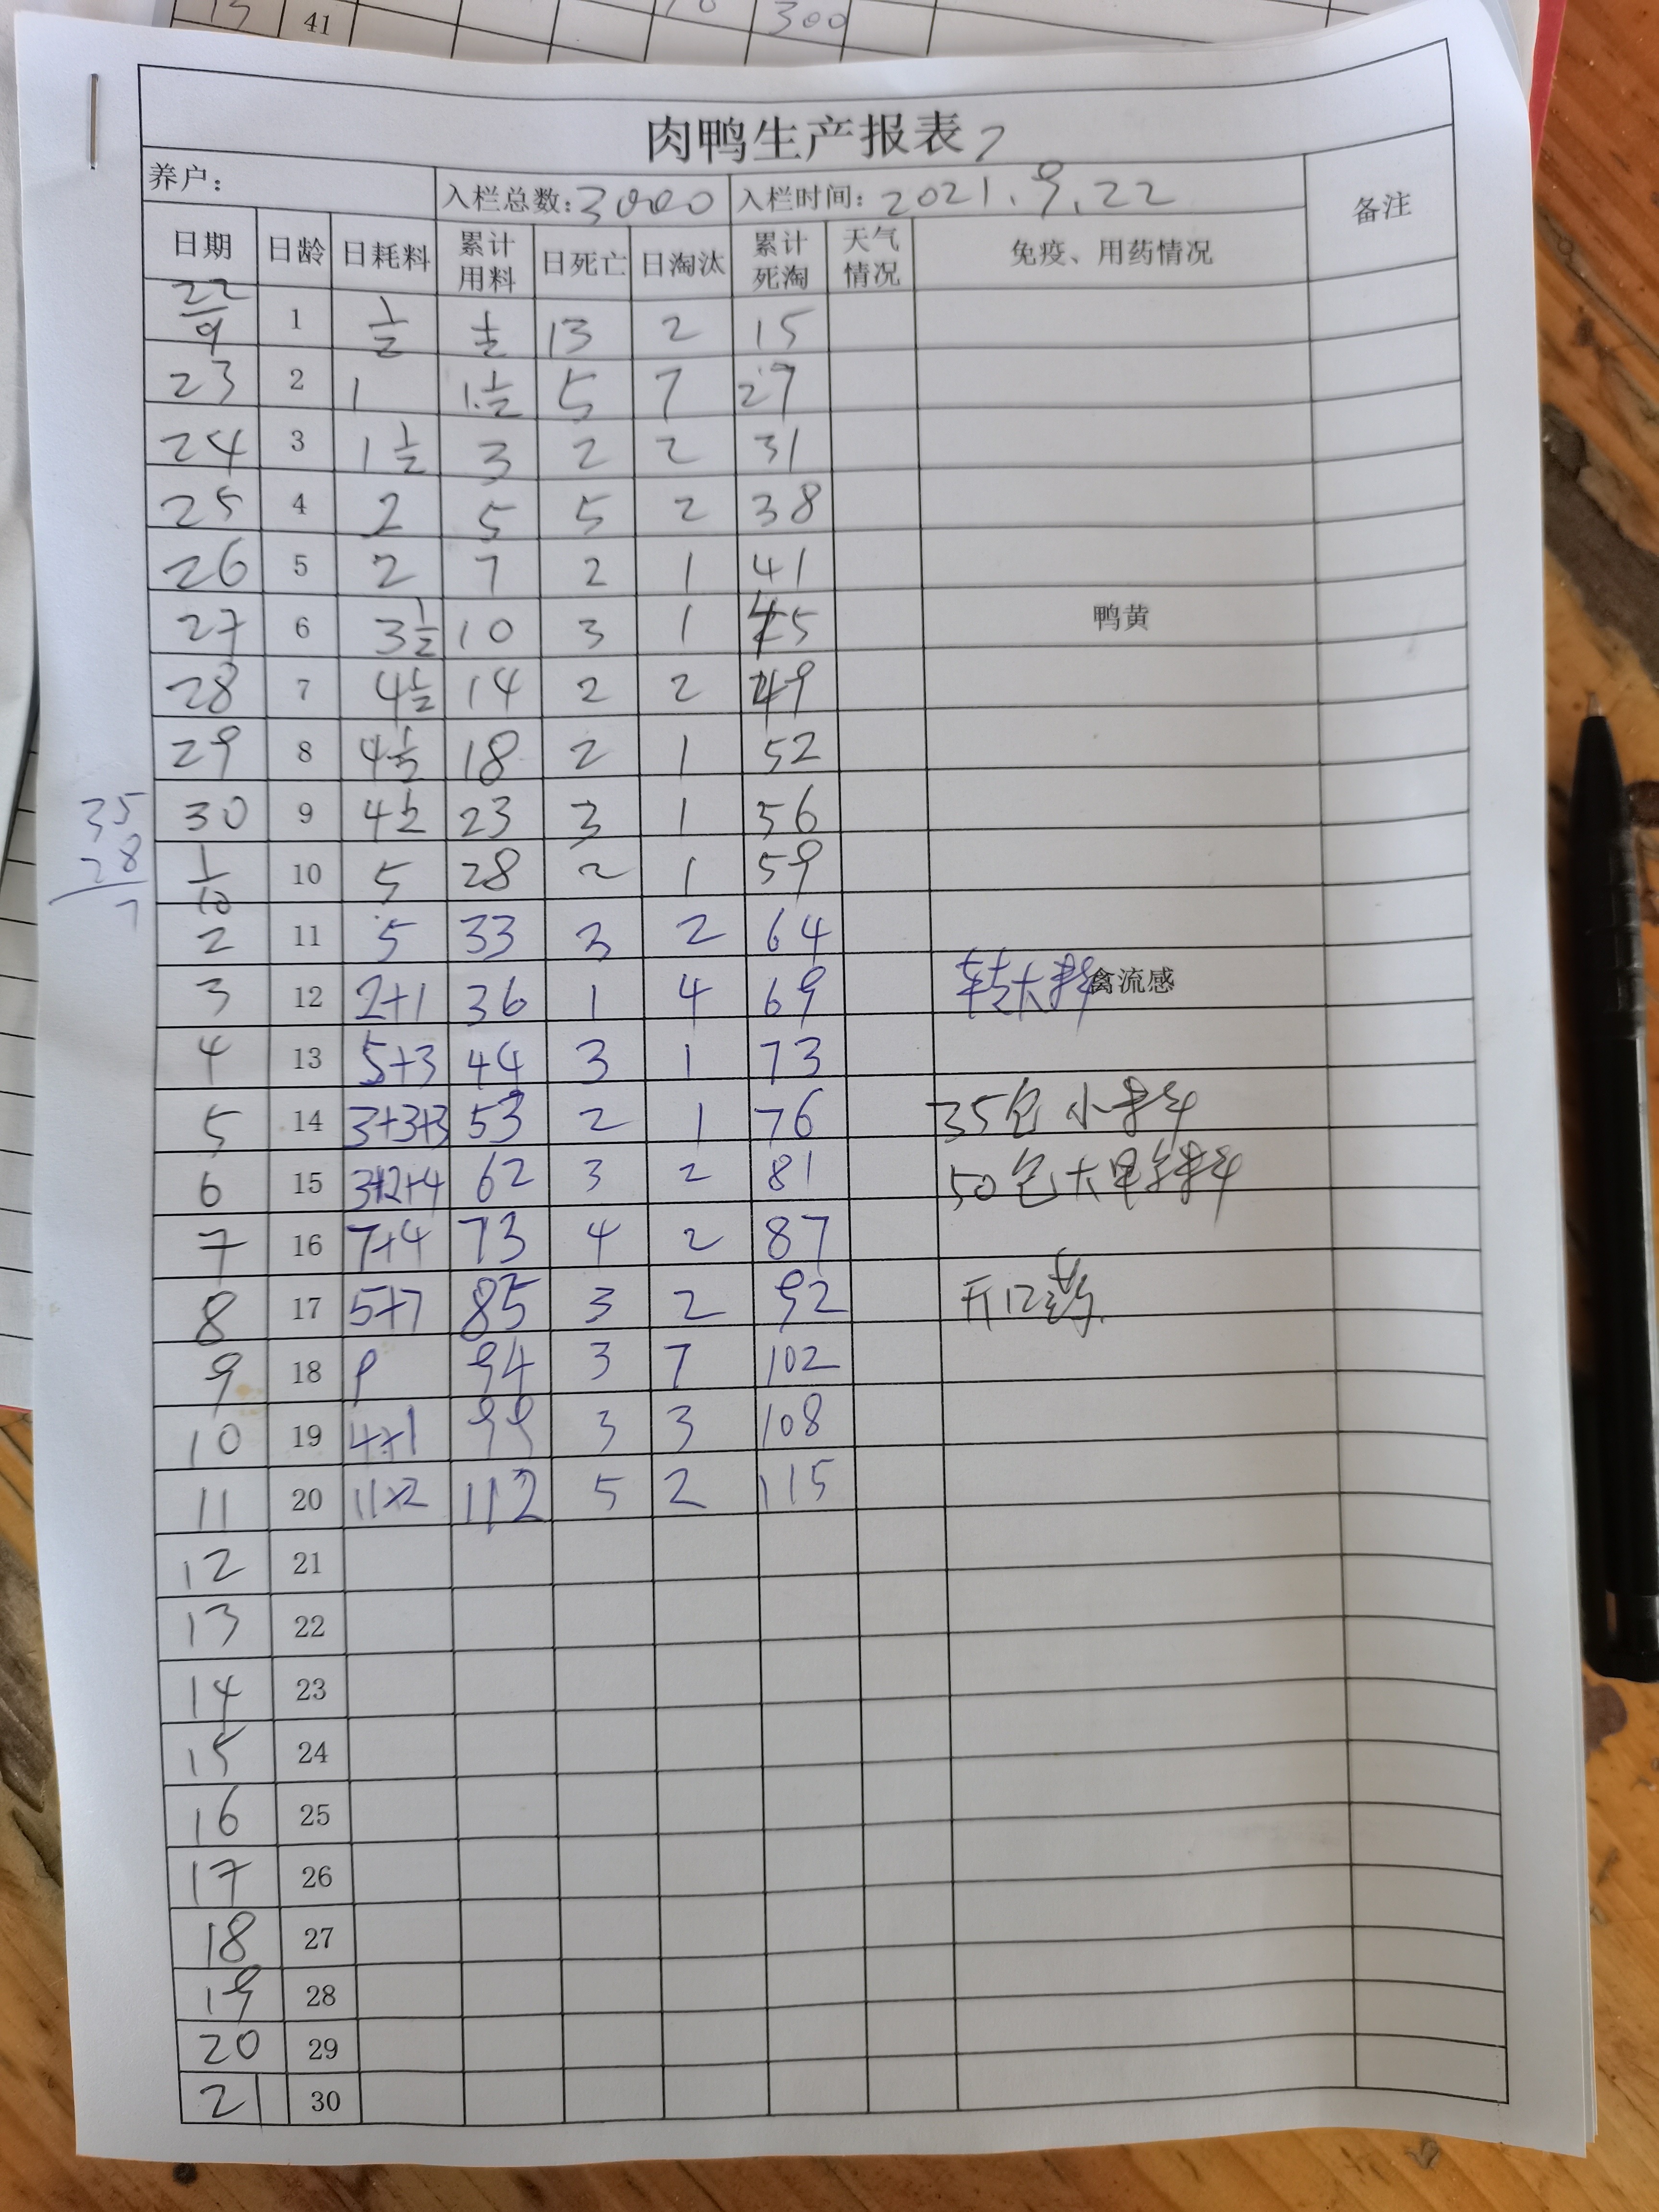 41 300
肉鸭生产报表 7
养户： 入栏总数：3000 入栏时间：2021.9.22 备注
日期 日龄 日耗料 累计用料 日死亡 日淘汰 累计死淘 天气情况 免疫、用药情况
22/9 1 1/2 1/2 13 2 15
23 2 1 1 1/2 5 7 27
24 3 1 1/2 3 2 2 31
25 4 2 5 5 2 38
26 5 2 7 2 1 41
27 6 3 1/2 10 3 1 45 鸭黄
28 7 4 1/2 14 2 2 49
29 8 4 1/2 18 2 1 52
35
30 9 4 1/2 23 3 1 56
28
1/10 10 5 28 2 1 59
7
2 11 5 33 3 2 64
3 12 2+1 36 1 4 69 转大料 禽流感
4 13 5+3 44 3 1 73
5 14 3+3+3 53 2 1 76 35包小料
6 15 3+2+4 62 3 2 81 50包大料
7 16 7+4 73 4 2 87
8 17 5+7 85 3 2 92 开口药
9 18 9 94 3 7 102
10 19 4+1 99 3 3 108
11 20 11+2 112 5 2 115
12 21
13 22
14 23
15 24
16 25
17 26
18 27
19 28
20 29
21 30